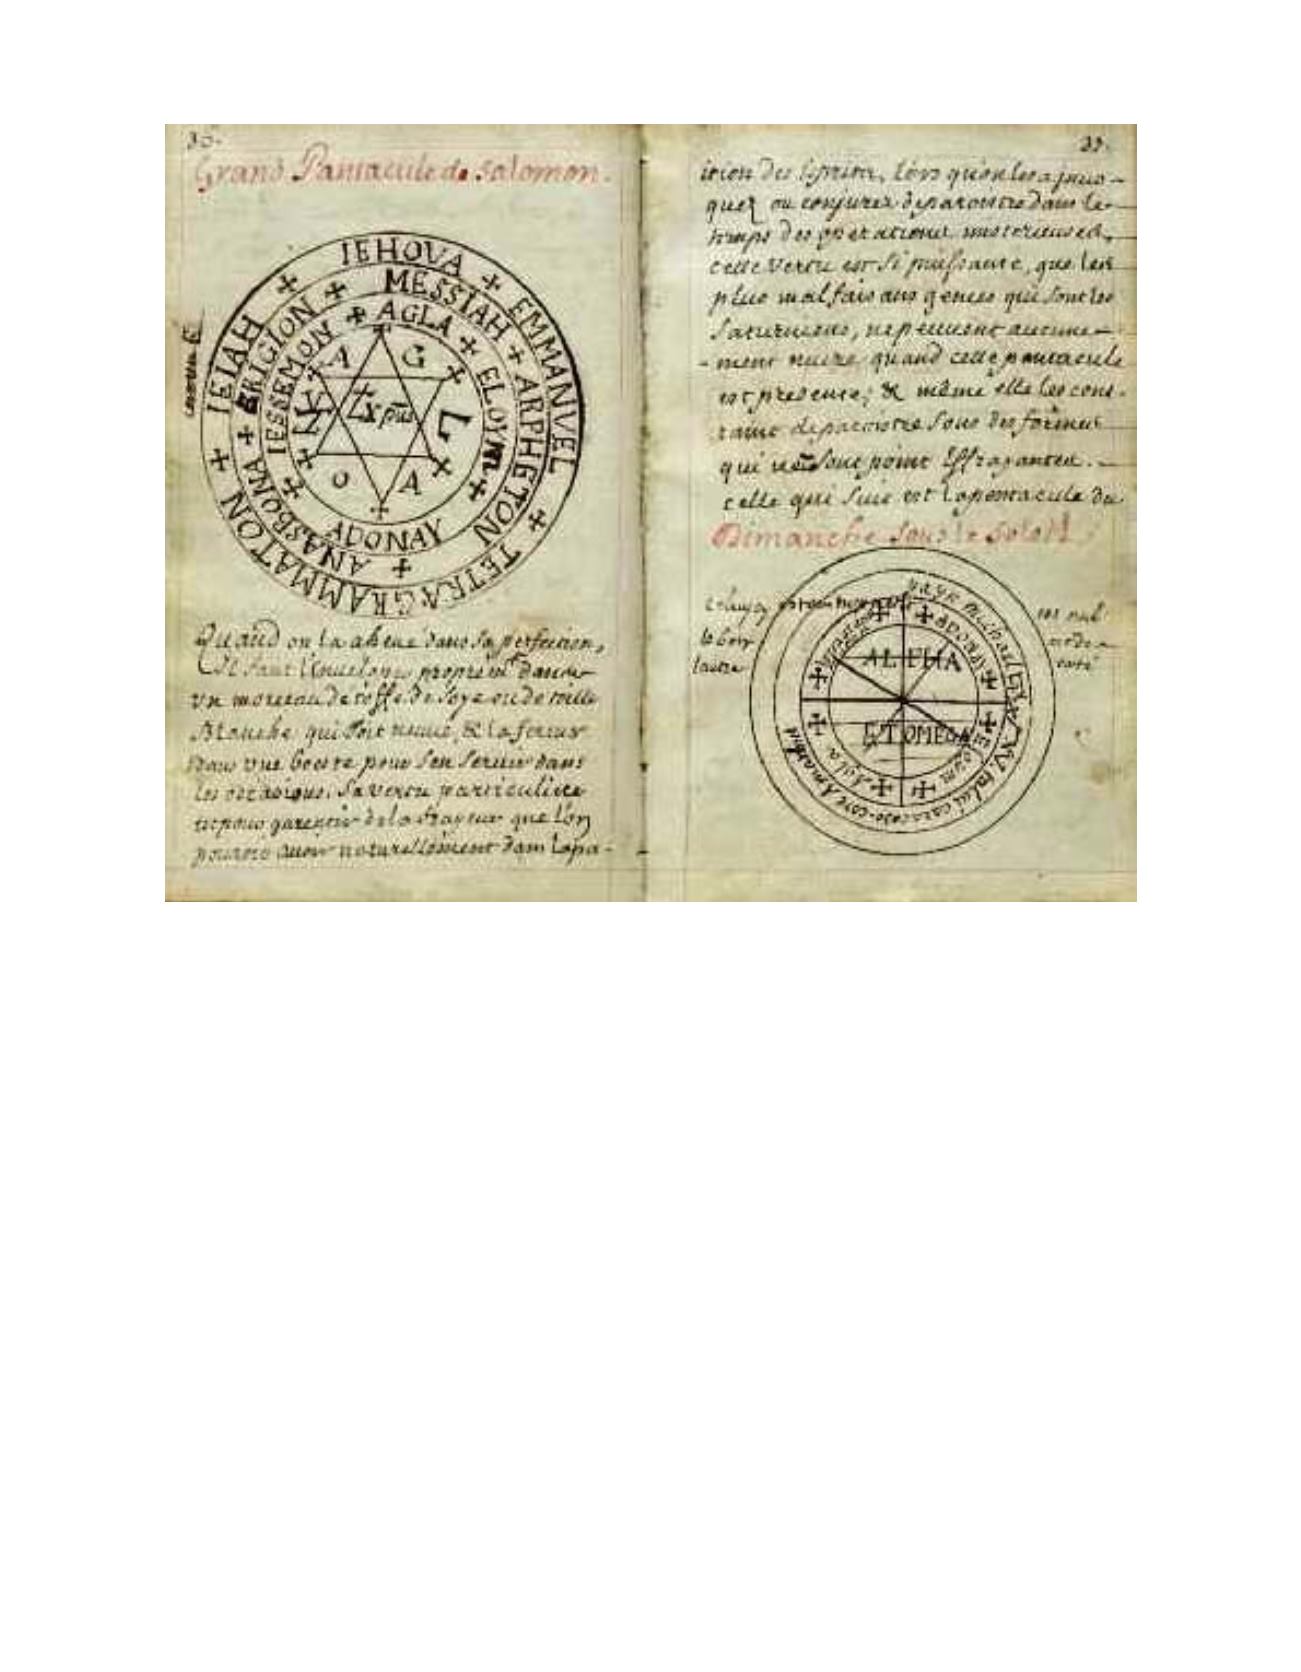 Grand Pantacule de Salomon.
✠ IEHOVA ✠ EMMANVEL ✠ TETRAGRAMMATON ✠ IEIAH
✠ MESSIAH ✠ ARPHETON ✠ ANASBONA ✠ ERIGION
✠ AGLA ✠ ELOYM ✠ ADONAY ✠ IESSEMON
A G
Xpūs
L
O A
Quand on la aheué dans sa perfection,
Il faut l'enueloper propremt dans
vn morceau de toffe de soye ou de toille
Blanche qui soit neuue, & la serrer
dans vne boeste pour s'en seruir dans
les occasions. Sa vertu particuliere
est pour garentir de la frayeur que l'on
pouroit auoir naturellement dans lapa-
33.
ition des Esprits, lors qu'on les a jnuo-
quez ou conjurez de paroistre dans le
temps des operations misterieuses,
cette vertu est si puissante, que les
plus malfaisans genies qui sont les
Saturniens, ne peuuent aucune-
ment nuire, quand cette pantacule
est presente; & même elle les cons-
traint de paroistre sous des formes
qui ne sont point Effrayantes.
celle qui suit est la pentacule du
Dimanche sous le Soleil
ADONAY
ALPHA
ET OMEGA